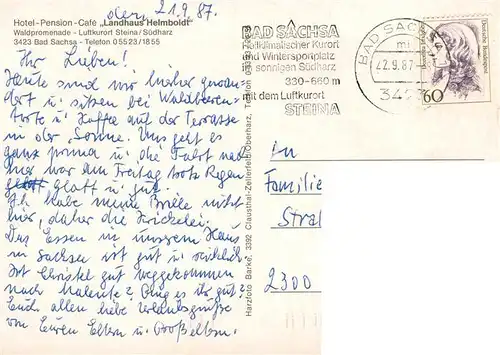 den, 21.9.87.
Hotel-Pension-Cafe „Landhaus Helmboldt"
Waldpromenade - Luftkurort Steina / Südharz
3423 Bad Sachsa - Telefon 0 55 23 / 18 55
Ihr Lieben!
Heute sind wir hierher gewan-
dert u. sitzen bei Waldbeeren-
torte u. Kaffee auf der Terrasse
in der Sonne. Uns geht es
ganz prima u. die Fahrt nach
hier war am Freitag trotz Regen
glatt u. gut.
Ich habe meine Brille nicht
hier, daher die Krickelei.
Das Essen in unserem Haus
in Sachsa ist gut u. reichlich
Ist Christel gut weggekommen
nach Malente? Ging es ihr gut?
Euch allen liebe Urlaubsgrüße
von Euren Eltern u. Großeltern.
Harzfoto Barke, 3392 Clausthal-Zellerfeld/Oberharz, Telefon
BAD SACHSA
Heilklimatischer Kurort
und Wintersportplatz
sonnigen Südharz
330-660 m
mit dem Luftkurort
STEINA
BAD SACHSA
22.9.87
3423
60
Deutsche Bundespost
An
Familie
Stral
2300